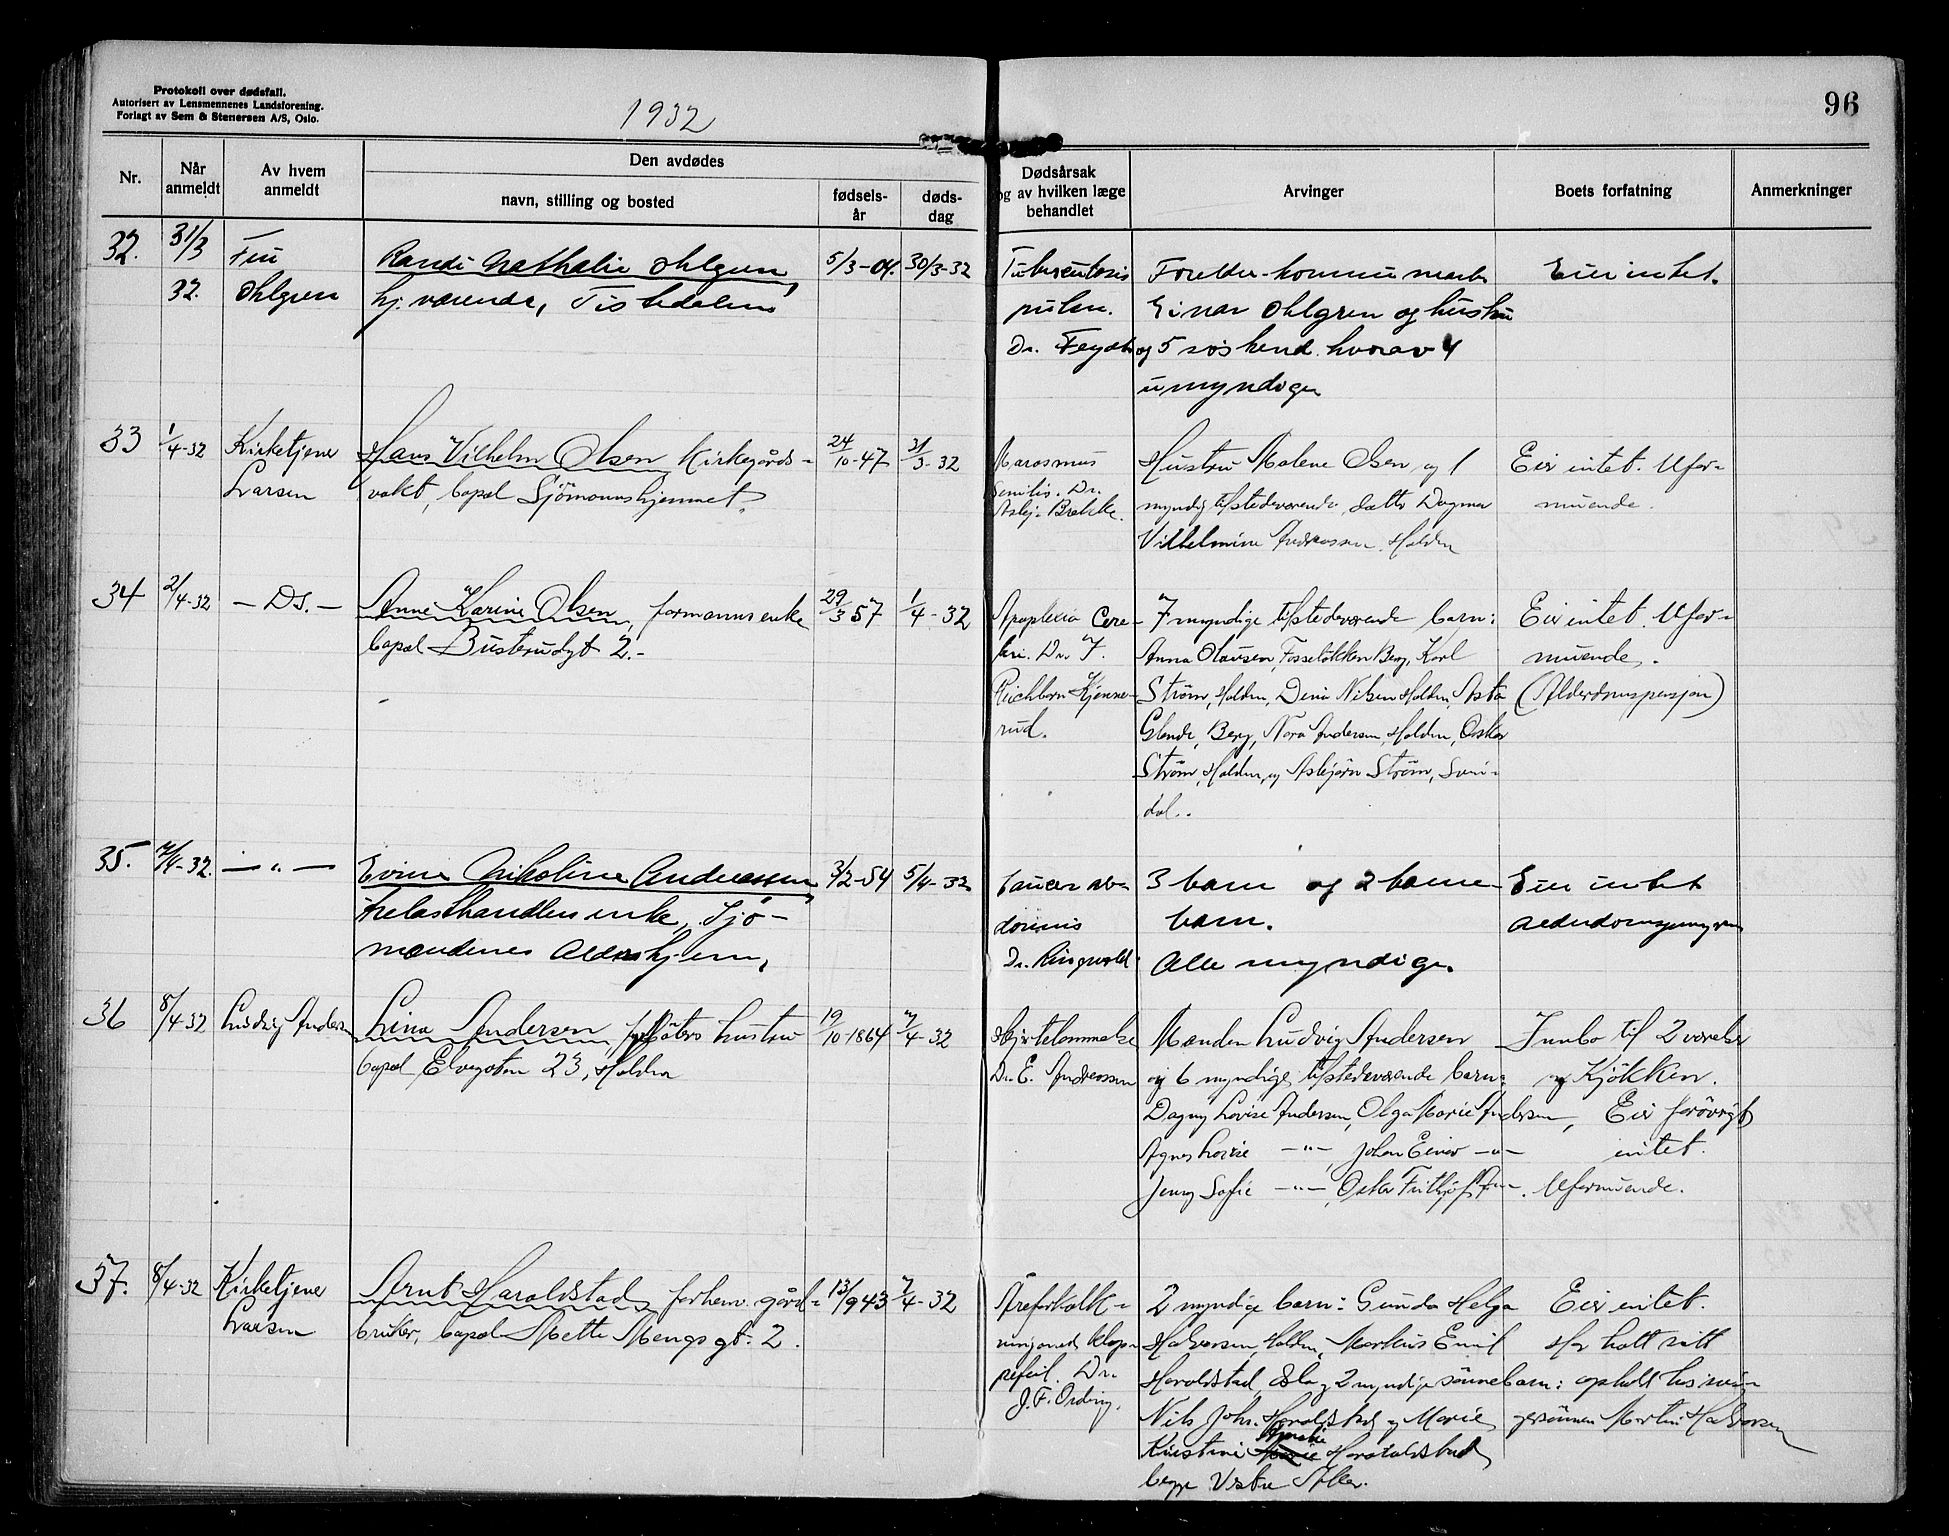 Protokoll over dødsfall.
Autorisert av Lensmennenes Landsforening.
Forlagt av Sem & Stenersen A/S, Oslo.
1932
96
Nr.
Når anmeldt
Av hvem anmeldt
Den avdødes
navn, stilling og bosted
fødselsår
dødsdag
Dødsårsak og av hvilken læge behandlet
Arvinger
Boets forfatning
Anmerkninger
32. 31/3 32.
Ohlgren
Randi Nathalie Ohlgren,
hj. værende, Tistedalen
5/3-04. 30/3-32
Tuberculosis
pulm.
Dr.
Foreldre
Einar Ohlgren og hustru
og 5 søskend. hvorav 4
umyndige
Eier intet.
33 1/4-32
Kirketjener
Larsen
Hans Vilhelm Olsen Kirkegårds-
vakt, bopæl Sjömannshjemmet.
24/10-47 31/3-32
Marasmus
Senilis. Dr.
Asbj. Brække.
Hustru Malene Olsen, og 1
myndig tilstedeværende datter Dagmar
Vilhelmine Andreassen, Halden
Eier intet. Ufor-
muende.
34 2/4-32
— Ds. —
Anne Karine Olsen, formannsenke
bopæl Busterudgt 2.-
29/3 57 1/4-32
Apoplexia Cere-
bri. Dr. F.
Eichborn Kjenne-
rud.
7 myndige tilstedeværende barn:
Anna Olausen, Fosseløkken Berg, Karl
Strøm, Halden, Dina Nilsen Halden, Asta
Glende, Berg, Nora Andersen, Halden, Oskar
Strøm, Halden, og Asbjørn Strøm, Svin-
dal.
Eier intet. Ufor-
muende.
(Alderdomspensjon)
35. 7/4-32.
— " —
Nikoline Andreassen,
trelasthandlers enke, Sjø-
mændenes Aldershjem,
3/2-54 5/4-32
Cancer ab-
dominis
Dr. Ringvold
3 barn og 2 barne-
barn.
Alle myndige.
Eier intet
36 8/4-32
Ludvig Andersen
Lina Andersen, hustru
bopæl, Elvegaten 23, Halden
19/10-1864 7/4-32
Hjertelammelse
Dr. E. Andreassen
Manden Ludvig Andersen
og 6 myndige tilstedeværende barn:
Dagny Lovise Andersen, Olga Marie Andersen,
Agnes Lovise —"—, Johan Einar —"—
Jenny Sofie —"—, Oskar Frithjof An—.
Innbo til 2 værelser
og Kjökken.
Eier forövrigt
intet.
Uformuende.
37. 8/4-32
Kirketjener
Larsen
Arnt Haraldstad, forhenv. gård-
bruker, bopæl Mette Mengs gt. 2.
13/9 43 7/4-32
Åreforkalk-
ning med klap-
pefeil. Dr.
J. F. Ording.
2 myndige barn: Gunda Helga
Halvorsen, Halden, Markus Emil
Haraldstad, Oslo og 2 myndige sönnebarn:
Nils Joh. Haraldstad og Marie
Kristine Amalie Haraldstad
begge Vestre Aker.
Eier intet.
Har hatt sitt
ophold hos svi-
gersönnen Martin Halvorsen